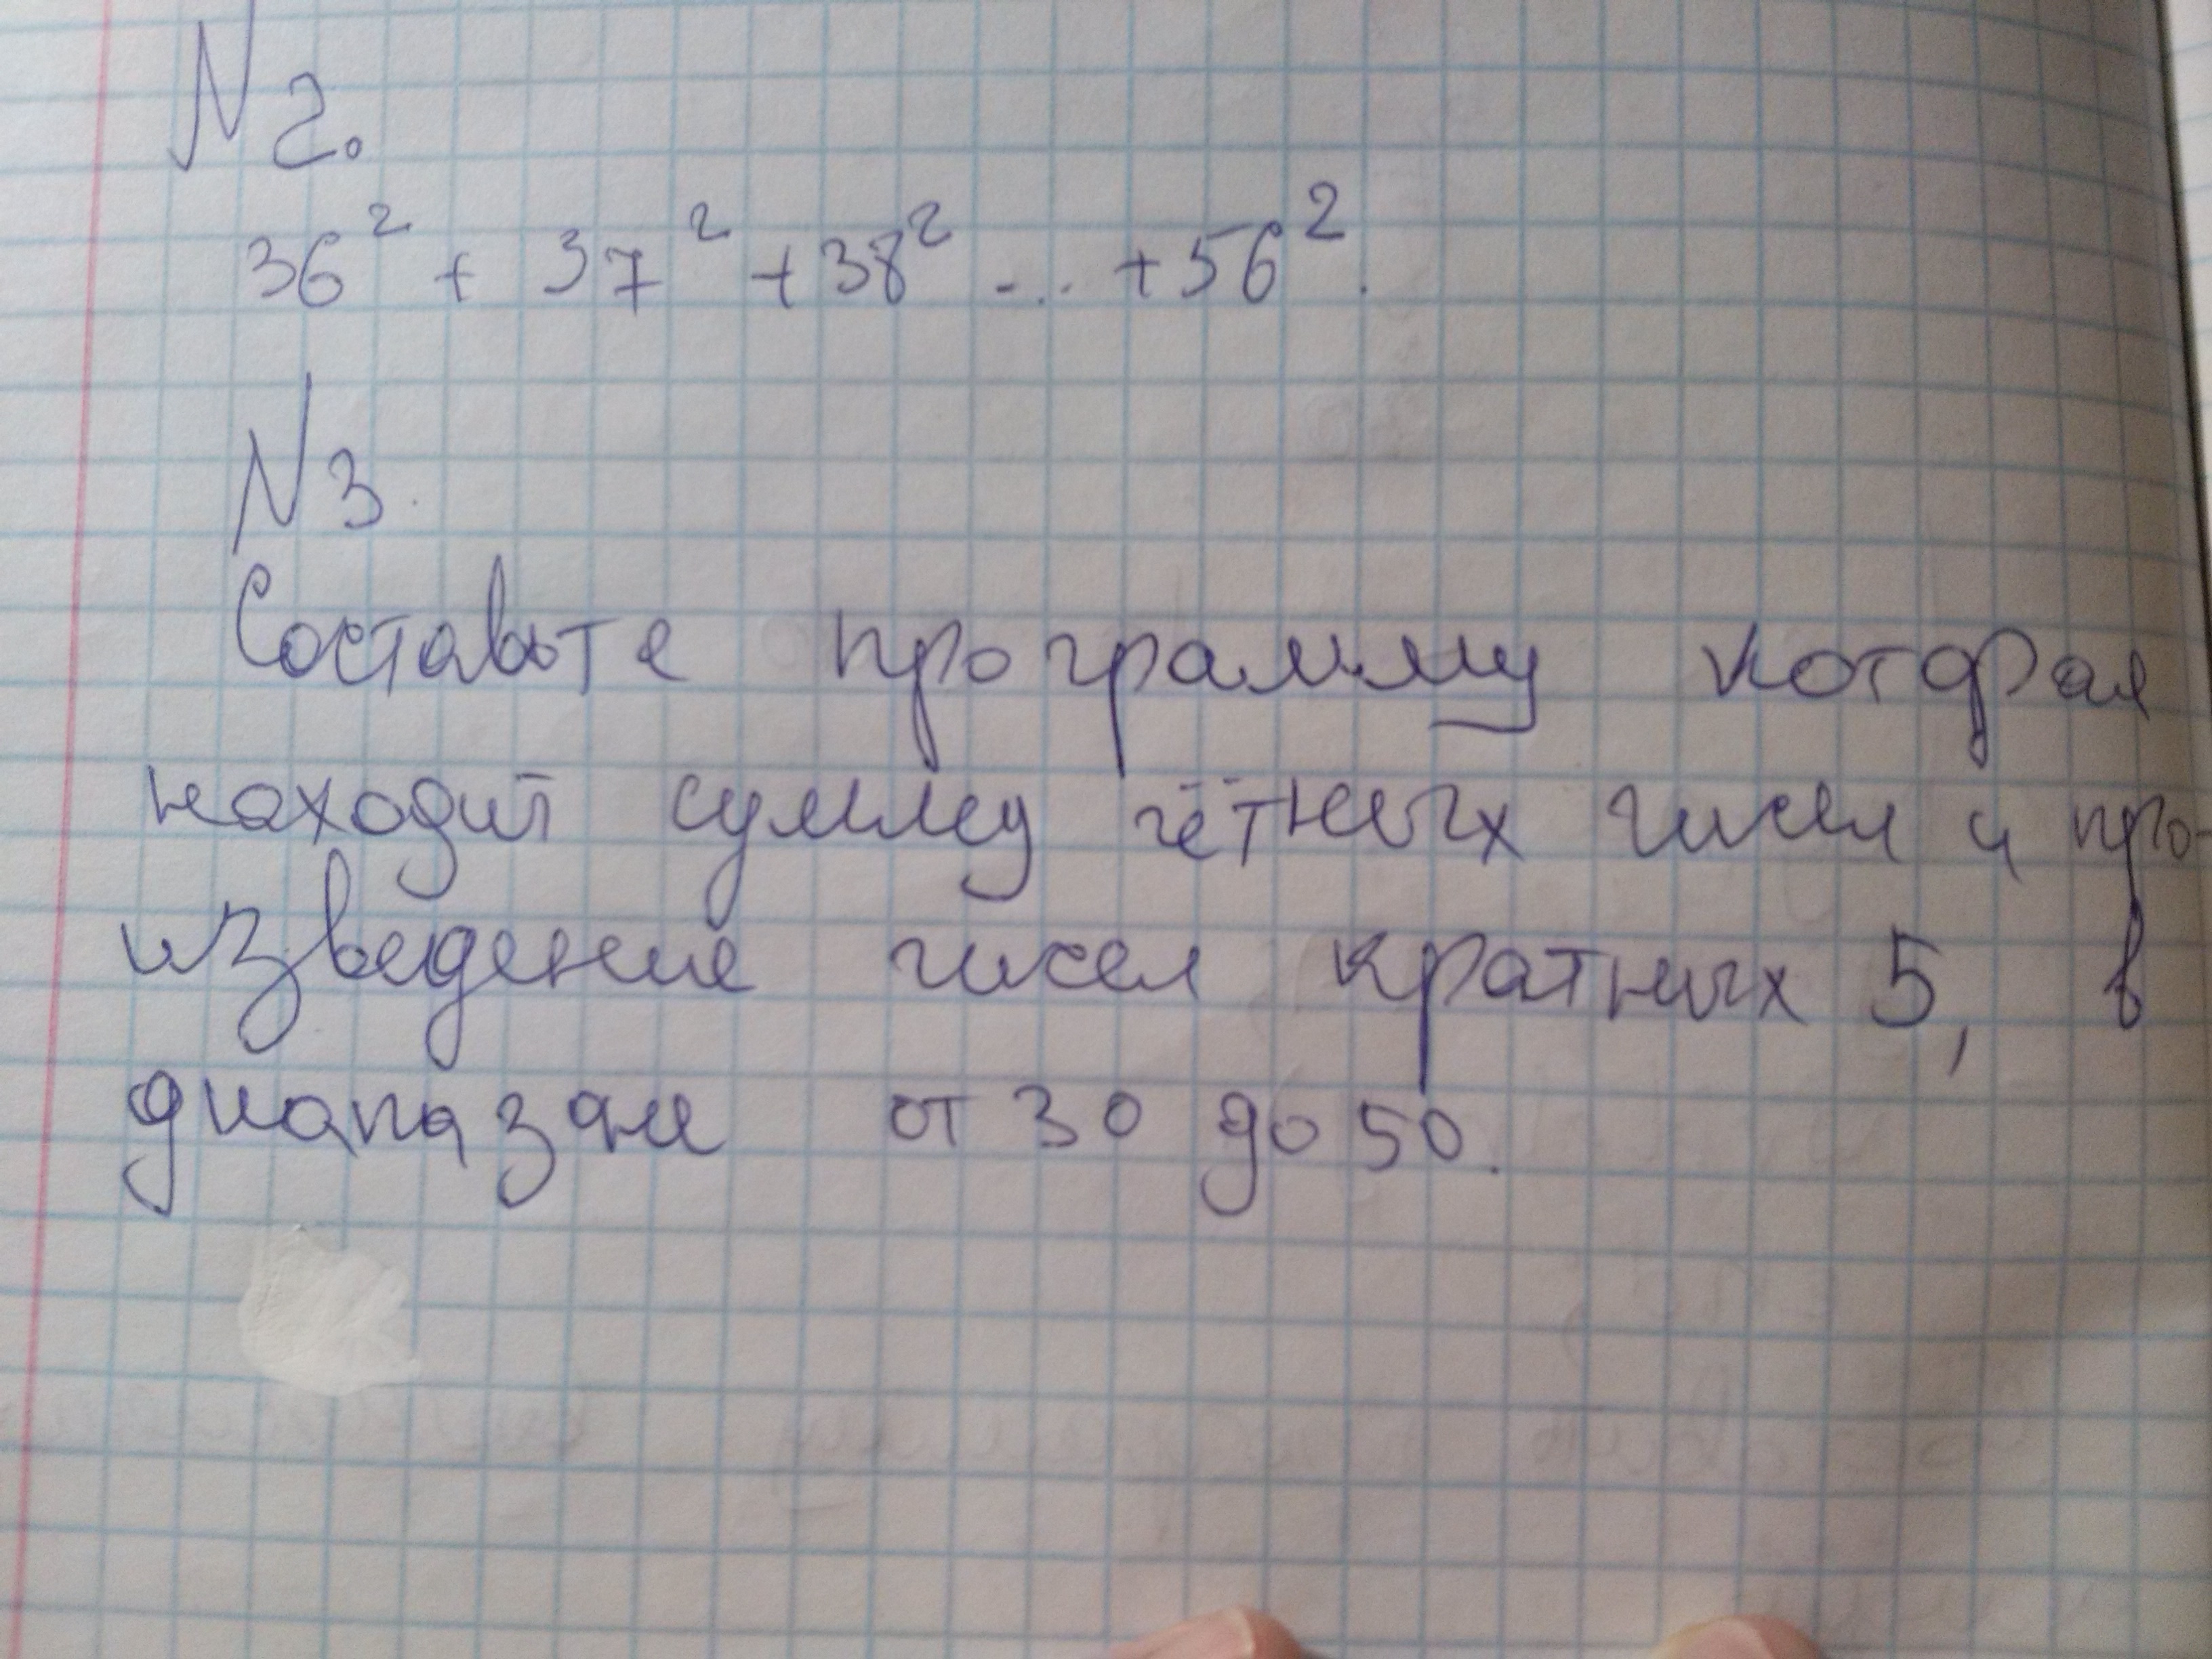 N 2.
36² + 37² + 38² ... + 56².
N 3
Составьте программу которая
находит сумму чётных чисел и про-
изведение чисел кратных 5, в
диапазоне от 30 до 50.